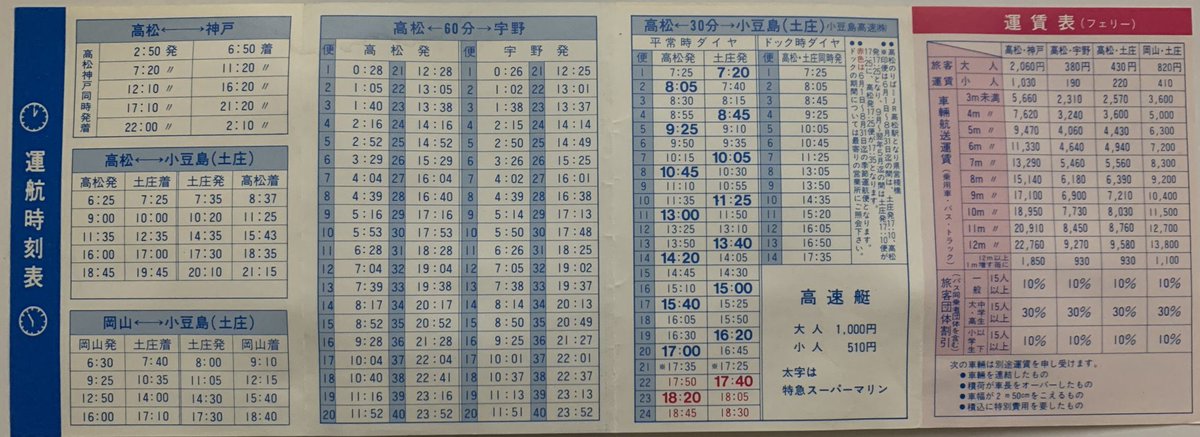 運航時刻表
高松←→神戸
高松神戸同時発着
2:50発 6:50着
7:20〃 11:20〃
12:10〃 16:20〃
17:10〃 21:20〃
22:00〃 2:10〃
高松←→小豆島(土庄)
高松発 土庄着 土庄発 高松着
6:25 7:25 7:35 8:37
9:00 10:00 10:20 11:25
11:35 12:35 14:35 15:43
16:00 17:00 17:30 18:35
18:45 19:45 20:10 21:15
岡山←→小豆島(土庄)
岡山発 土庄着 土庄発 岡山着
6:30 7:40 8:00 9:10
9:25 10:35 11:05 12:15
12:50 14:00 14:30 15:40
16:00 17:10 17:30 18:40
高松←60分→宇野
便 高松発 便 宇野発
1 0:28 21 12:28 1 0:26 21 12:25
2 1:05 22 12:51 2 1:02 22 13:01
3 1:40 23 13:38 3 1:38 23 13:37
4 2:16 24 14:16 4 2:15 24 14:14
5 2:52 25 14:52 5 2:50 25 14:49
6 3:29 26 15:29 6 3:26 26 15:25
7 4:04 27 16:04 7 4:01 27 16:01
8 4:39 28 16:40 8 4:39 28 16:37
9 5:16 29 17:16 9 5:14 29 17:13
10 5:53 30 17:53 10 5:49 30 17:49
11 6:28 31 18:28 11 6:26 31 18:25
12 7:04 32 19:04 12 7:05 32 19:02
13 7:39 33 19:38 13 7:39 33 19:38
14 8:17 34 20:17 14 8:14 34 20:13
15 8:52 35 20:52 15 8:50 35 20:49
16 9:28 36 21:28 16 9:26 36 21:27
17 10:04 37 22:04 17 10:01 37 22:01
18 10:40 38 22:41 18 10:37 38 22:37
19 11:16 39 23:16 19 11:13 39 23:13
20 11:52 40 23:52 20 11:51 40 23:52
高松←30分→小豆島(土庄)小豆島高速㈱
平常時ダイヤ ドック時ダイヤ
便 高松発 土庄発 便 高松・土庄同時発
1 7:25 7:20 1 7:25
2 8:05 7:40 2 8:05
3 8:30 8:15 3 8:45
4 8:55 8:45 4 9:25
5 9:25 9:10 5 10:05
6 9:50 9:35 6 10:45
7 10:15 10:05 7 11:25
8 10:45 10:30 8 13:10
9 11:10 10:55 9 13:50
10 11:35 11:25 10 14:35
11 13:00 11:50 11 15:20
12 13:25 13:10 12 16:05
13 13:50 13:40 13 16:50
14 14:20 14:05 14 17:35
15 14:45 14:30
16 15:10 15:00
17 15:40 15:25
18 16:05 15:50
19 16:30 16:20
20 17:00 16:45
21 ※17:35 ※17:25
22 17:50 17:40
23 18:20 18:05
24 18:45 18:30
●高松のりばーJR高松駅となり県営桟橋
●赤色は6月1日～8月31日迄の季節運航便となります。
●ドックの期間については最寄りの営業所にご照会下さい。
高速艇
大人 1,000円
小人 510円
太字は
特急スーパーマリン
運賃表(フェリー)
高松・神戸 高松・宇野 高松・土庄 岡山・土庄
旅客運賃
大人 2,060円 380円 430円 820円
小人 1,030 190 220 410
車輛航送運賃(乗用車・バス・トラック)
3m未満 5,660 2,310 2,570 3,600
4m〃 7,620 3,240 3,600 5,000
5m〃 9,470 4,060 4,430 6,300
6m〃 11,330 4,640 4,940 7,200
7m〃 13,290 5,460 5,560 8,300
8m〃 15,140 6,180 6,390 9,200
9m〃 17,100 6,900 7,210 10,400
10m〃 18,950 7,730 8,030 11,500
11m〃 20,910 8,450 8,760 12,700
12m〃 22,760 9,270 9,580 13,800
12m以上1m増す毎に 1,850 930 930 1,100
旅客団体割引(バス同乗者団体を含む)
一般 15人以上 10% 10% 10% 10%
中学生・大・高 15人以上 30% 30% 30% 30%
小学生以下 15人以上 10% 10% 10% 10%
次の車輛は別途運賃を申し受けます。
●車輛を連結したもの
●積荷が車長をオーバーしたもの
●車幅が2m50cmをこえるもの
●積込に特別費用を要したもの